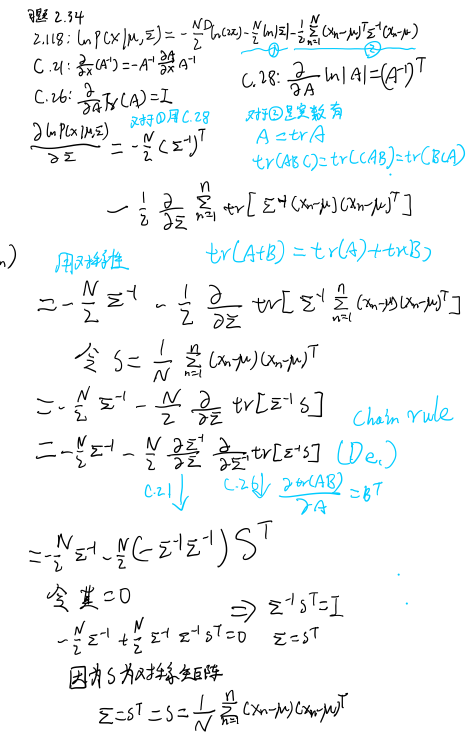 习题 2.34
2.118: ln p(X|μ,Σ) = -ND/2 ln(2π) - N/2 ln|Σ| - 1/2 Σ_{n=1}^{N} (xn-μ)^T Σ^{-1} (xn-μ)
① ②
C.21: ∂/∂x (A^{-1}) = -A^{-1} ∂A/∂x A^{-1}
C.28: ∂/∂A ln|A| = (A^{-1})^T
C.26: ∂/∂A Tr(A) = I
对于①用C.28
对于②是实数有
A = trA
tr(ABC) = tr(CAB) = tr(BCA)
∂ln p(X|μ,Σ)/∂Σ = -N/2 (Σ^{-1})^T
- 1/2 ∂/∂Σ Σ_{n=1}^{n} tr[Σ^{-1} (xn-μ)(xn-μ)^T]
n)
用对称性
tr(A+B) = tr(A)+trB)
= -N/2 Σ^{-1} - 1/2 ∂/∂Σ tr[Σ^{-1} Σ_{n=1}^{n} (xn-μ)(xn-μ)^T]
令 S = 1/N Σ_{n=1}^{n} (xn-μ)(xn-μ)^T
= -N/2 Σ^{-1} - N/2 ∂/∂Σ tr[Σ^{-1}S]
chain rule
= -N/2 Σ^{-1} - N/2 ∂Σ^{-1}/∂Σ ∂/∂Σ^{-1} tr[Σ^{-1}S]
C.21↓ C.26↓ ∂tr(AB)/∂A = B^T
= -N/2 Σ^{-1} - N/2 (-Σ^{-1}Σ^{-1}) S^T
令其=0
⇒ Σ^{-1}S^T = I
-N/2 Σ^{-1} + N/2 Σ^{-1} Σ^{-1} S^T = 0 Σ = S^T
因为S为对称矩阵
Σ = S^T = S = 1/N Σ_{n=1}^{n} (xn-μ)(xn-μ)^T